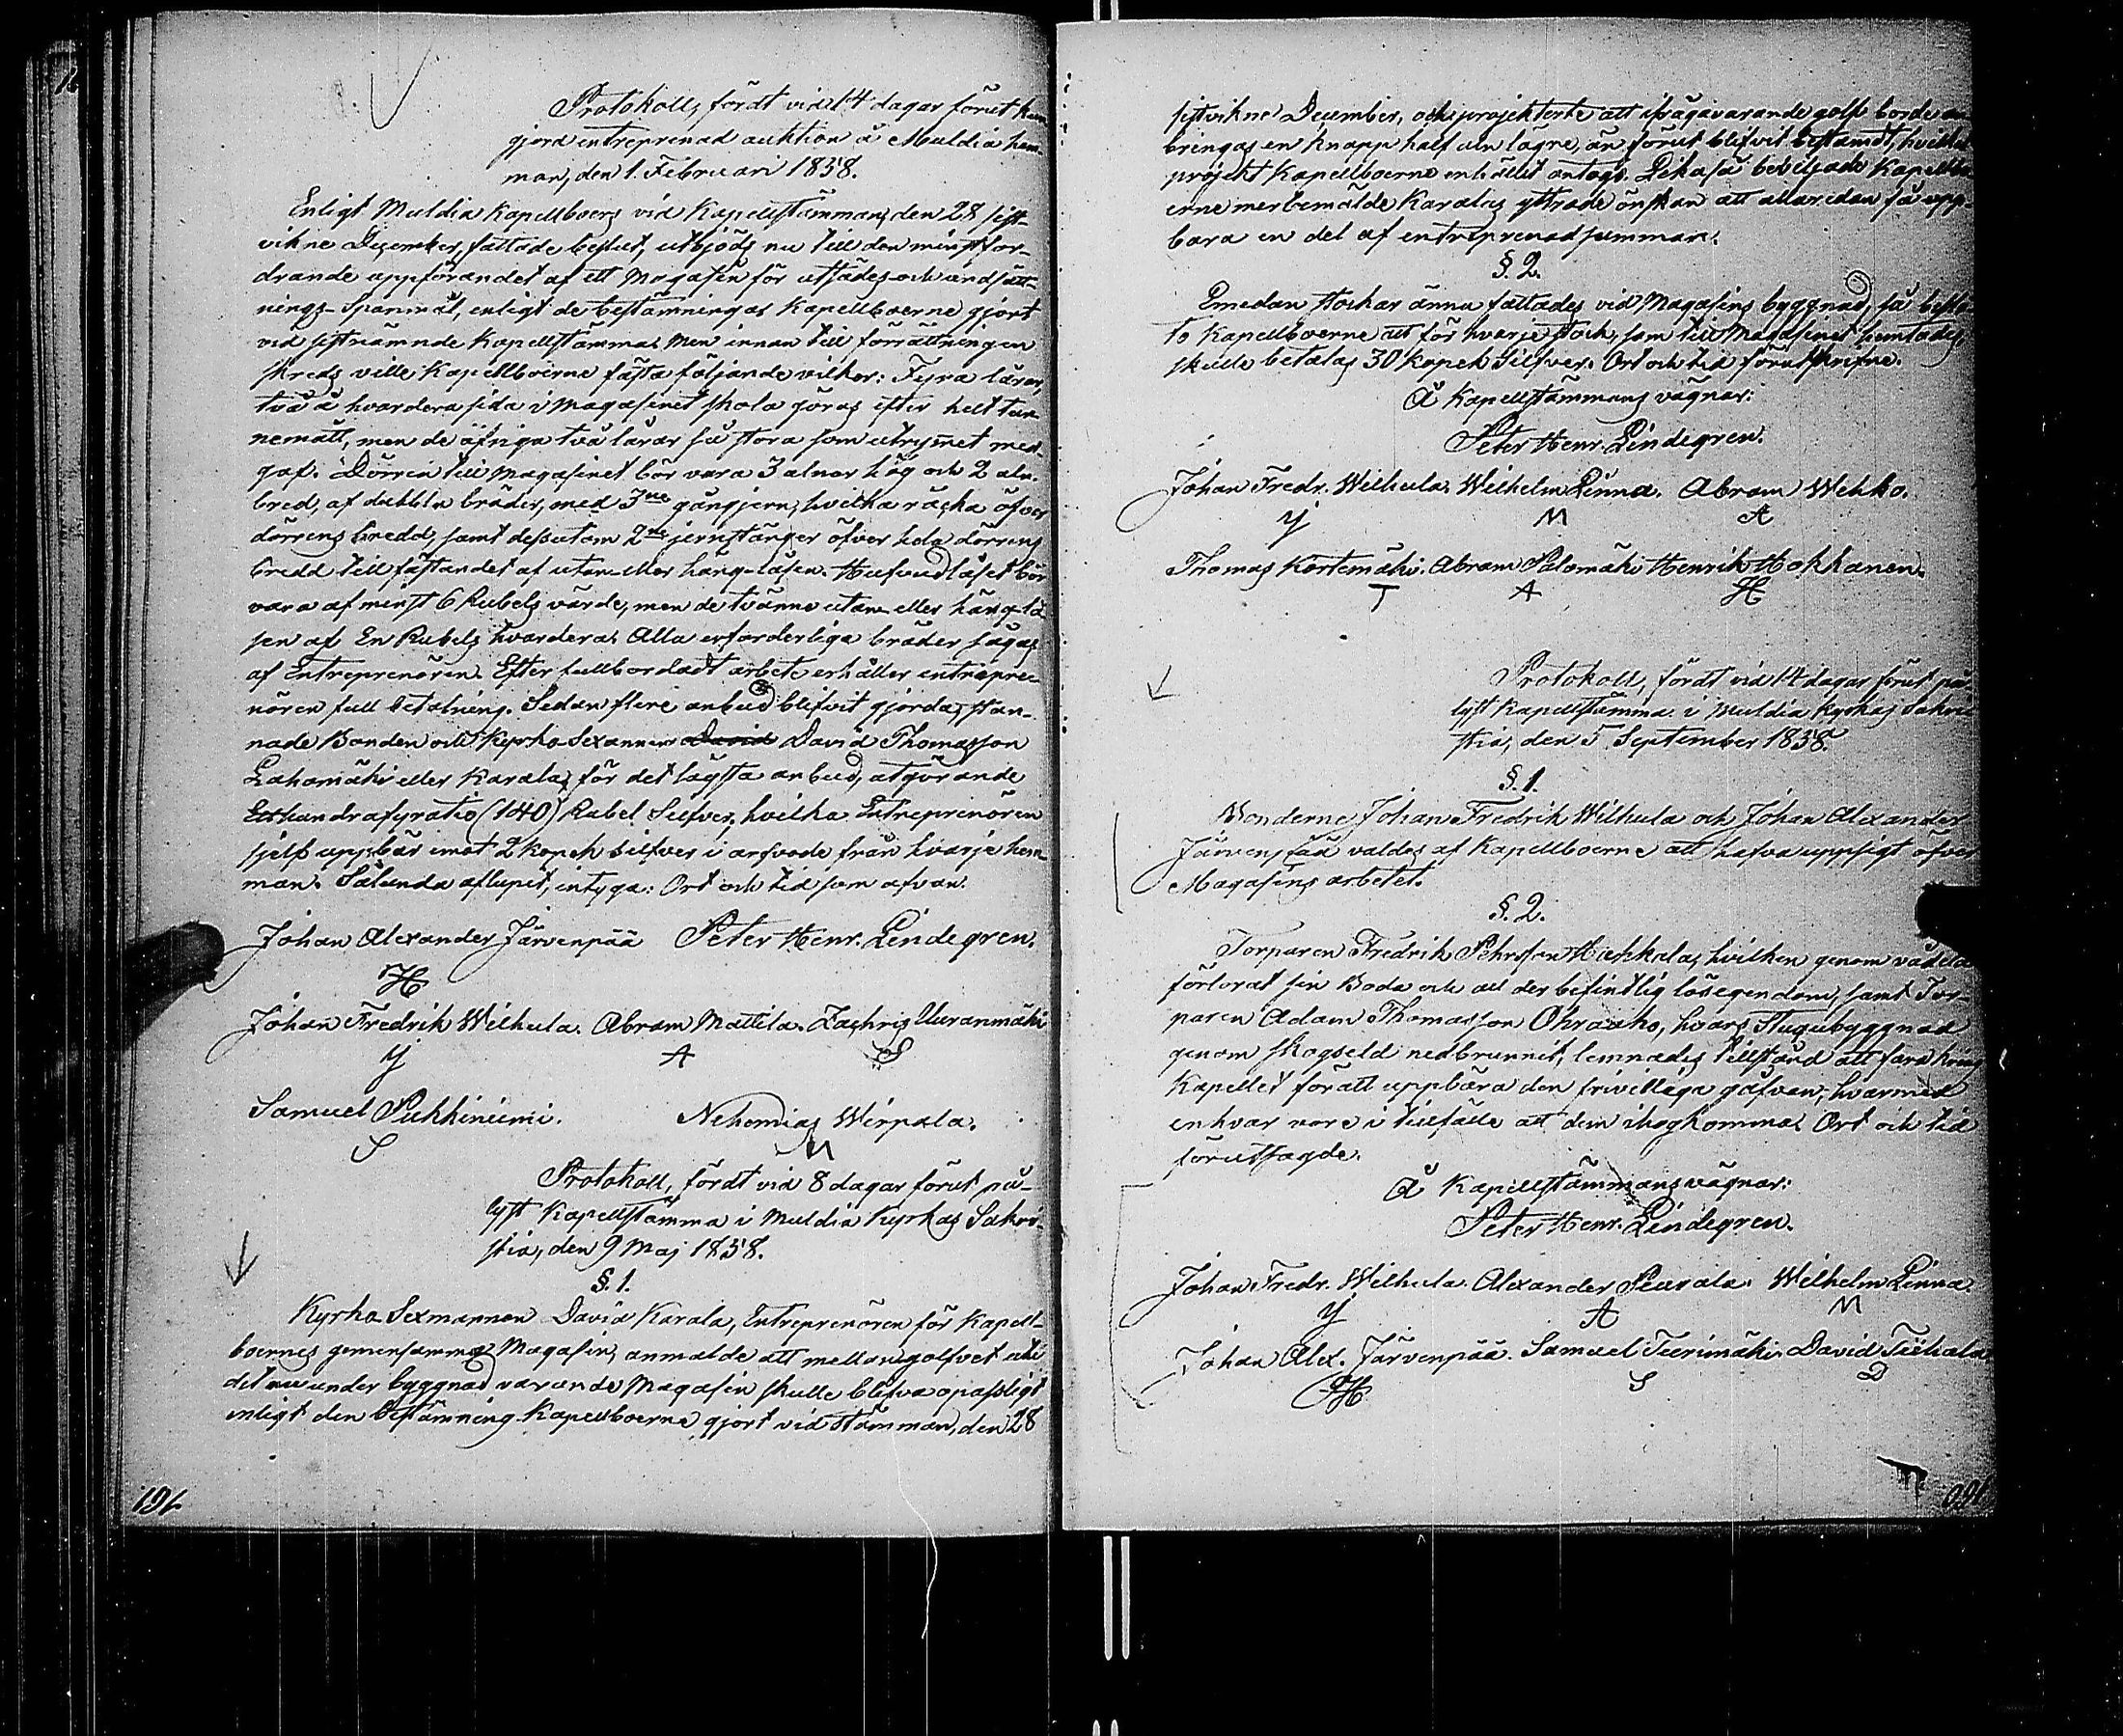 Protokoll, fördt vid 14 dagar förut kun
gjord entreprenad auktion å Muldia hem-
man, den 1. Februari 1858.
Enligt Muldia Kapellboers vid Kapellstämman, den 28 sist-
vikne December, fattade beslut, utbjöds nu till den minstfor-
drande uppförandet af ett Magasin för utsädes- och undsätt-
nings-Spanmål, enligt de bestämningar Kapellboerne gjort
vid sistnämnde Kapellstämma. Men innan till förrättningen
skreds ville Kapellboerne fästa följande vilkor: Fyra lårar,
två å hvardera sida i Magasinet skola göras efter helt tun-
nemått, men de öfriga två lårar så stora som utrymet med-
gaf. Dörren till Magasinet bör vara 3 alnar hög och 2 aln.
bred, af dubbla bräder, med 3ne gångjern, hvilka räcka öfver
dörrens bredd, samt dessutom 2ne jernstänger öfver hela dörrens
bredd till fästandet af utan- eller häng-låsen. Hufvudlåset bör
vara af minst 6 Rubels värde, men de tvänne utan- eller häng-lå-
sen af En Rubels hvardera. Alla erforderliga bräder sågas
af Entreprenören. Efter fullbordadt arbete erhåller entrepre-
nören full betalning. Sedan flere anbud blifvit gjorda, stan-
nade Bonden och Kyrko-Sexannen David David Thomasson
Lahomäki eller Karala, för det lägsta anbud, utgörande
Etthundrafyratio (140) Rubel Silfver, hvilka Entreprenören
sjelf uppbär imot 2 kopek silfver i arfvode från hvarje hem-
man. Sålunda aflupit, intyga: Ort och tid som ofvan.
Johan Alexander Järvenpää Peter Henr. Lindegren.
H
Johan Fredrik Wilhula. Abram Mattila. Zachris Uuranmäki
y A S
Samuel Pukkiniemi. Nehemias Wirpala.
S M
Protokoll, fördt vid 8 dagar förut på-
lyst Kapellstämma i Muldia Kyrkas Sakri-
stia, den 9 Maj 1858.
§. 1.
Kyrko-Sexmannen David Karala, Entreprenören för Kapell-
boernes gemensamma Magasin, anmälde att mellangolfvet uti
det nu under byggnad varande Magasin skulle blifva opassligt
enligt den bestämning Kapellboerne gjort vid stämman, den 28
191
sistvikne December, och projekterte att ifrågavarande golf borde an-
bringas en knapp half aln lägre, än förut blifvit bestämdt, hvilket
projekt Kapellboerne enhälligt antogo. Likaså beviljade Kapellbo-
erne merbemälde Karalas yttrade önskan att allaredan få upp-
bära en del af entreprenadsumman.
§. 2.
Emedan stockar ännu fattades vid Magasins byggnad, så beslö-
to Kapellboerne att för hvarje stock, som till Magasinet hemtades,
skulle betalas 30 kopek Silfver. Ort och tid förutskrifne.
Å Kapellstämmans vägnar:
Peter Henr. Lindegren.
Johan Fredr. Wilhula. Wilhelm Linna. Abram Wehko.
y M A
Thomas Kortemäki. Abram Salomäki Henrik Hokkanen.
T A H
Protokoll, fördt vid 14 dagar förut på-
lyst Kapellstämma i Muldia Kyrkas Sakri-
stia, den 5 September 1858.
§. 1.
Bönderne Johan Fredrik Wilhula och Johan Alexander
Järvenpää valdes af Kapellboerne att hafva uppsigt öfver
Magasins arbetet.
§. 2.
Torparen Fredrik Pehrsson Huhkala, hvilken genom vådeld
förlorat sin Boda och all der befintlig lösegendom, samt Tor-
paren Adam Thomasson Ohraaho, hvars Stugubyggnad
genom skogseld nedbrunnit, lemnades tillstånd att fara kring
Kapellet för att uppbära den frivilliga gåfvan, hvarmed
en hvar vore i tillfälle att dem ihogkomma. Ort och tid
förutsagde.
Å Kapellstämmans vägnar:
Peter Henr. Lindegren.
Johan Fredr. Wilhula. Alexander Peurala. Wilhelm Linna.
y A M
Johan Alex. Järvenpää. Samuel Teerimäki. David Tiihala
H S D